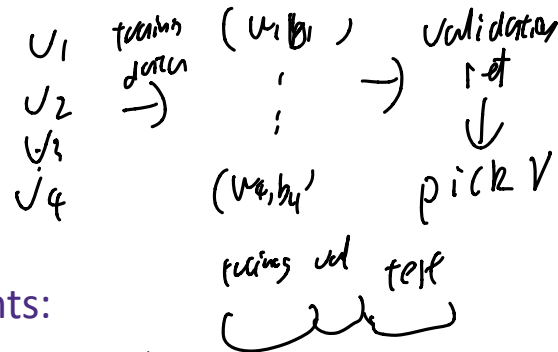 ν1 training data → (w1, b1) → validation set
ν2
ν3
ν4 (w4, b4) pick ν
training val test
nts: